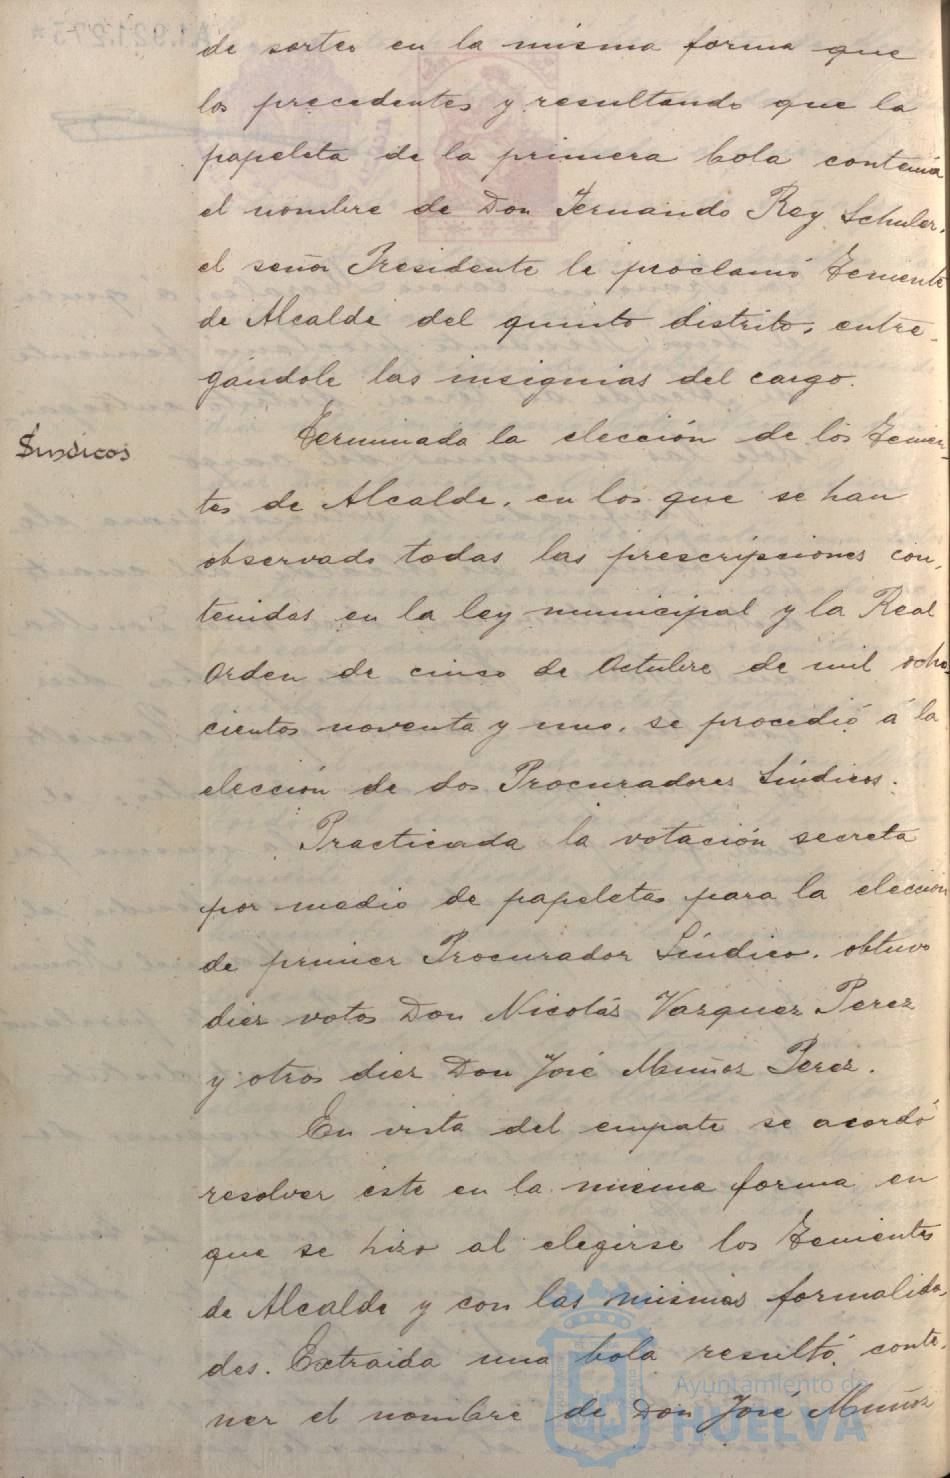 de sorteo en la misma forma que
los precedentes y resultando que la
papeleta de la primera bola contenia
el nombre de Don Fernando Rey Schuler,
el señor Presidente le proclamó Teniente
de Alcalde del quinto distrito, entre-
gándole las insignias del cargo.
Síndicos
Terminada la elección de los Tenien-
tes de Alcalde, en los que se han
observado todas las prescripciones con-
tenidas en la ley municipal y la Real
Orden de cinco de Octubre de mil ocho-
cientos noventa y uno, se procedió á la
elección de dos Procuradores Síndicos.
Practicada la votación secreta
por medio de papeletas para la elección
de primer Procurador Síndico, obtuvo
diez votos Don Nicolás Vazquez Perez
y otros diez Don José Muñoz Perez.
En vista del empate se acordó
resolver éste en la misma forma en
que se hizo al elegirse los Tenientes
de Alcalde y con las mismas formalida-
des. Extraida una bola resultó conte-
ner el nombre de Don José Muñoz
Ayuntamiento de
HUELVA